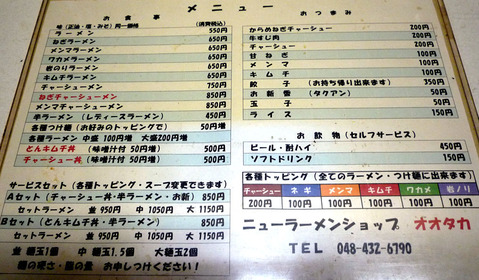 メニュー
お食事
味(正油・塩・みそ)同一価格 (消費税込)
ラーメン 550円
ねぎラーメン 650円
メンマラーメン 650円
ワカメラーメン 650円
岩のりラーメン 650円
キムチラーメン 650円
チャーシューメン 750円
ねぎチャーシューメン 850円
メンマチャーシューメン 850円
半ラーメン (レディースラーメン) 450円
各種つけ麺 (お好みのトッピングで) 50円増
各種ラーメン 中盛 100円増 大盛200円増
とんキムチ丼 (味噌汁付 50円増) 500円
チャーシュー丼 (味噌汁付 50円増) 500円
サービスセット (各種トッピング・スープ変更できます)
Aセット (チャーシュー丼・半ラーメン・お新)
ラーメンセット 並 950円 中 1050円 大 1150円
Bセット (とんキムチ丼・半ラーメン) 850円
ラーメンセット 並 950円 中 1050円 大 1150円
並 麺玉1個 中 麺玉1.5個 大 麺玉2個
麺の硬さ・脂の量 お申しつけください!
おつまみ
からめねぎチャーシュー 200円
牛すじ肉 200円
チャーシュー 200円
甘ねぎ 100円
メンマ 100円
キムチ 100円
餃子 (お持ち帰り出来ます) 350円
お新香 (タクアン) 50円
玉子 50円
ライス 150円
お飲物 (セルフサービス)
ビール・酎ハイ 450円
ソフトドリンク 150円
各種トッピング (全てのラーメン・つけ麺に出来ます)
チャーシュー ネギ メンマ キムチ ワカメ 岩ノリ
200円 100円 100円 100円 100円 100円
ニューラーメンショップ オオタカ
TEL 048-432-6790